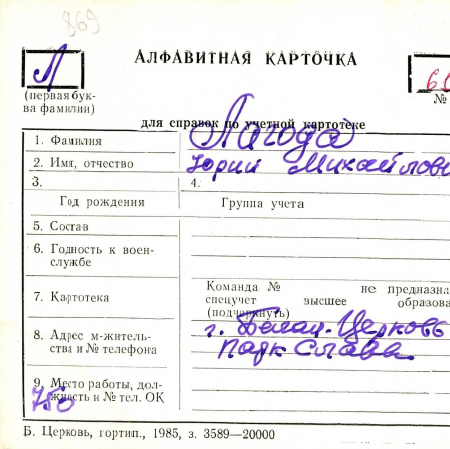 869
Л
АЛФАВИТНАЯ КАРТОЧКА
60
(первая бук-
ва фамилии)
№
для справок по учетной картотеке
1. Фамилия Лягода
2. Имя, отчество Юрий Михайлови
3.
4.
Год рождения
Группа учета
5. Состав
6. Годность к воен-
службе
Команда № не предназна
7. Картотека
спецучет высшее образова
(подчеркнуть)
8. Адрес м-житель-
ства и № телефона
г. Белая-Церковь
парк Слава
9. Место работы, дол-
жность и № тел. ОК
750
Б. Церковь, гортип., 1985, з. 3589—20000